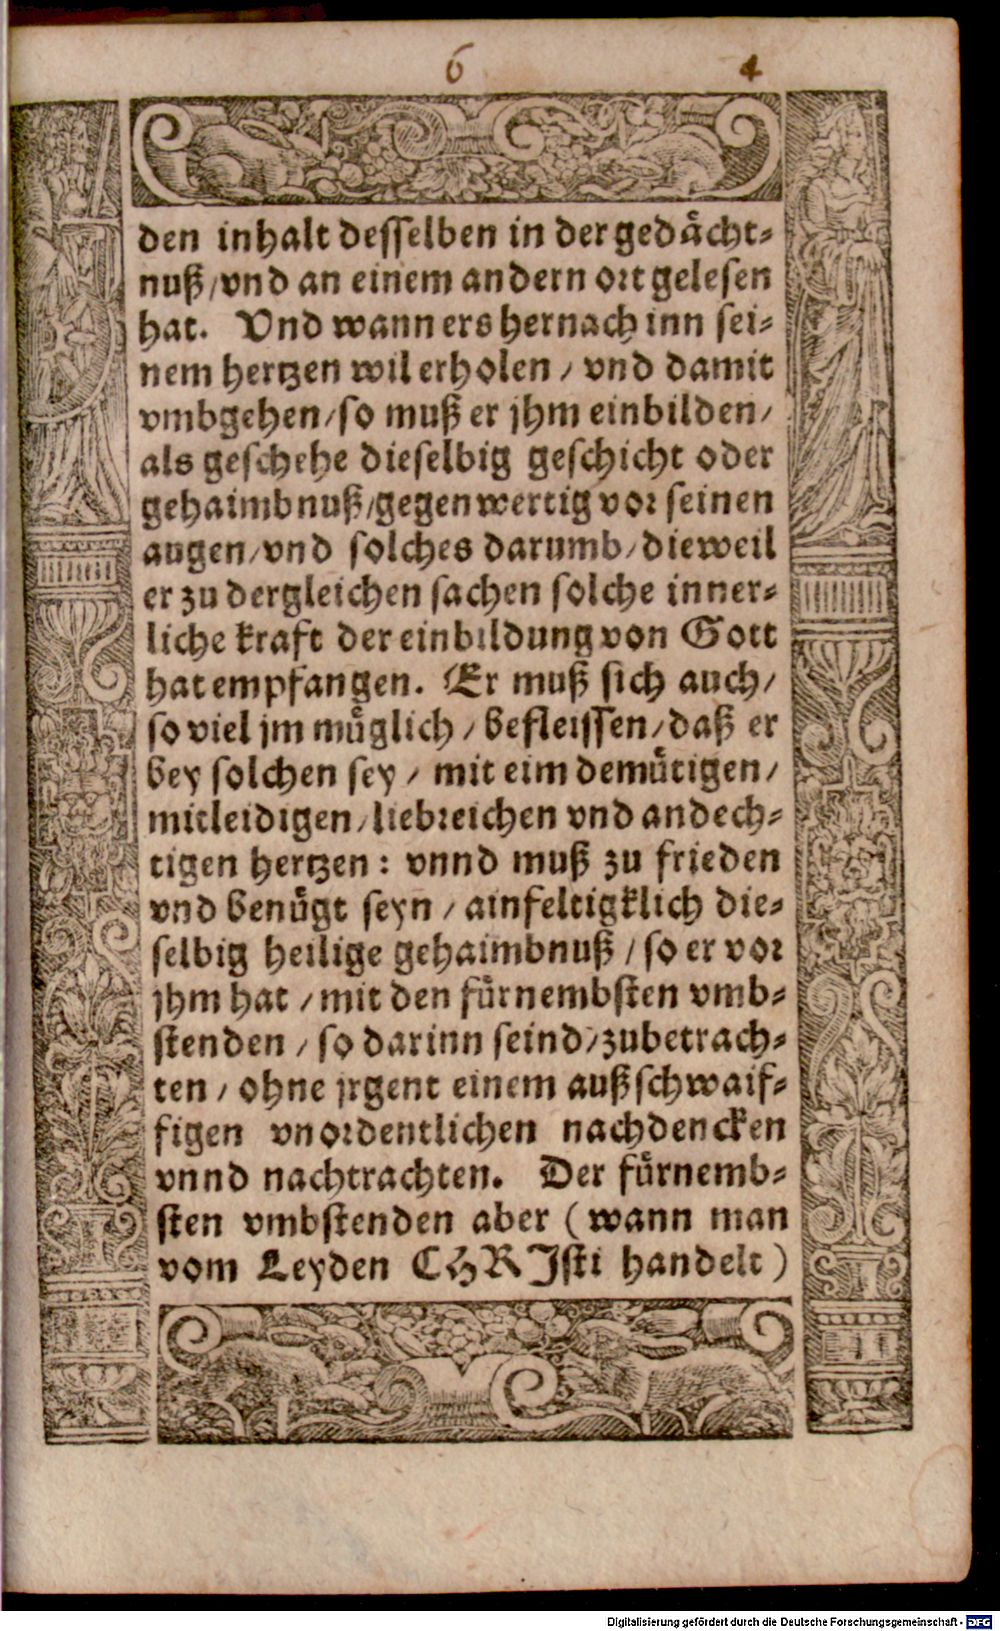 6 4
den inhalt desselben in der gedaͤcht⸗
nuß/vnd an einem andern ort gelesen
hat. Vnd wann ers hernach inn sei⸗
nem hertzen wil erholen / vnd damit
vmbgehen/so muß er jhm einbilden/
als geschehe dieselbig geschicht oder
gehaimbnuß/gegenwertig vor seinen
augen/vnd solches darumb/dieweil
er zu dergleichen sachen solche inner⸗
liche kraft der einbildung von Gott
hat empfangen. Er muß sich auch/
so viel jm muͤglich / befleissen/daß er
bey solchen sey / mit eim demuͤtigen/
mitleidigen/liebreichen vnd andech⸗
tigen hertzen: vnnd muß zu frieden
vnd benuͤgt seyn / ainfeltigklich die⸗
selbig heilige gehaimbnuß / so er vor
jhm hat / mit den fuͤrnembsten vmb⸗
stenden / so darinn seind/zubetrach⸗
ten / ohne jrgent einem außschwaif⸗
figen vnordentlichen nachdencken
vnnd nachtrachten. Der fuͤrnemb⸗
sten vmbstenden aber (wann man
vom Leyden CHRIsti handelt)
Digitalisierung gefördert durch die Deutsche Forschungsgemeinschaft - DFG